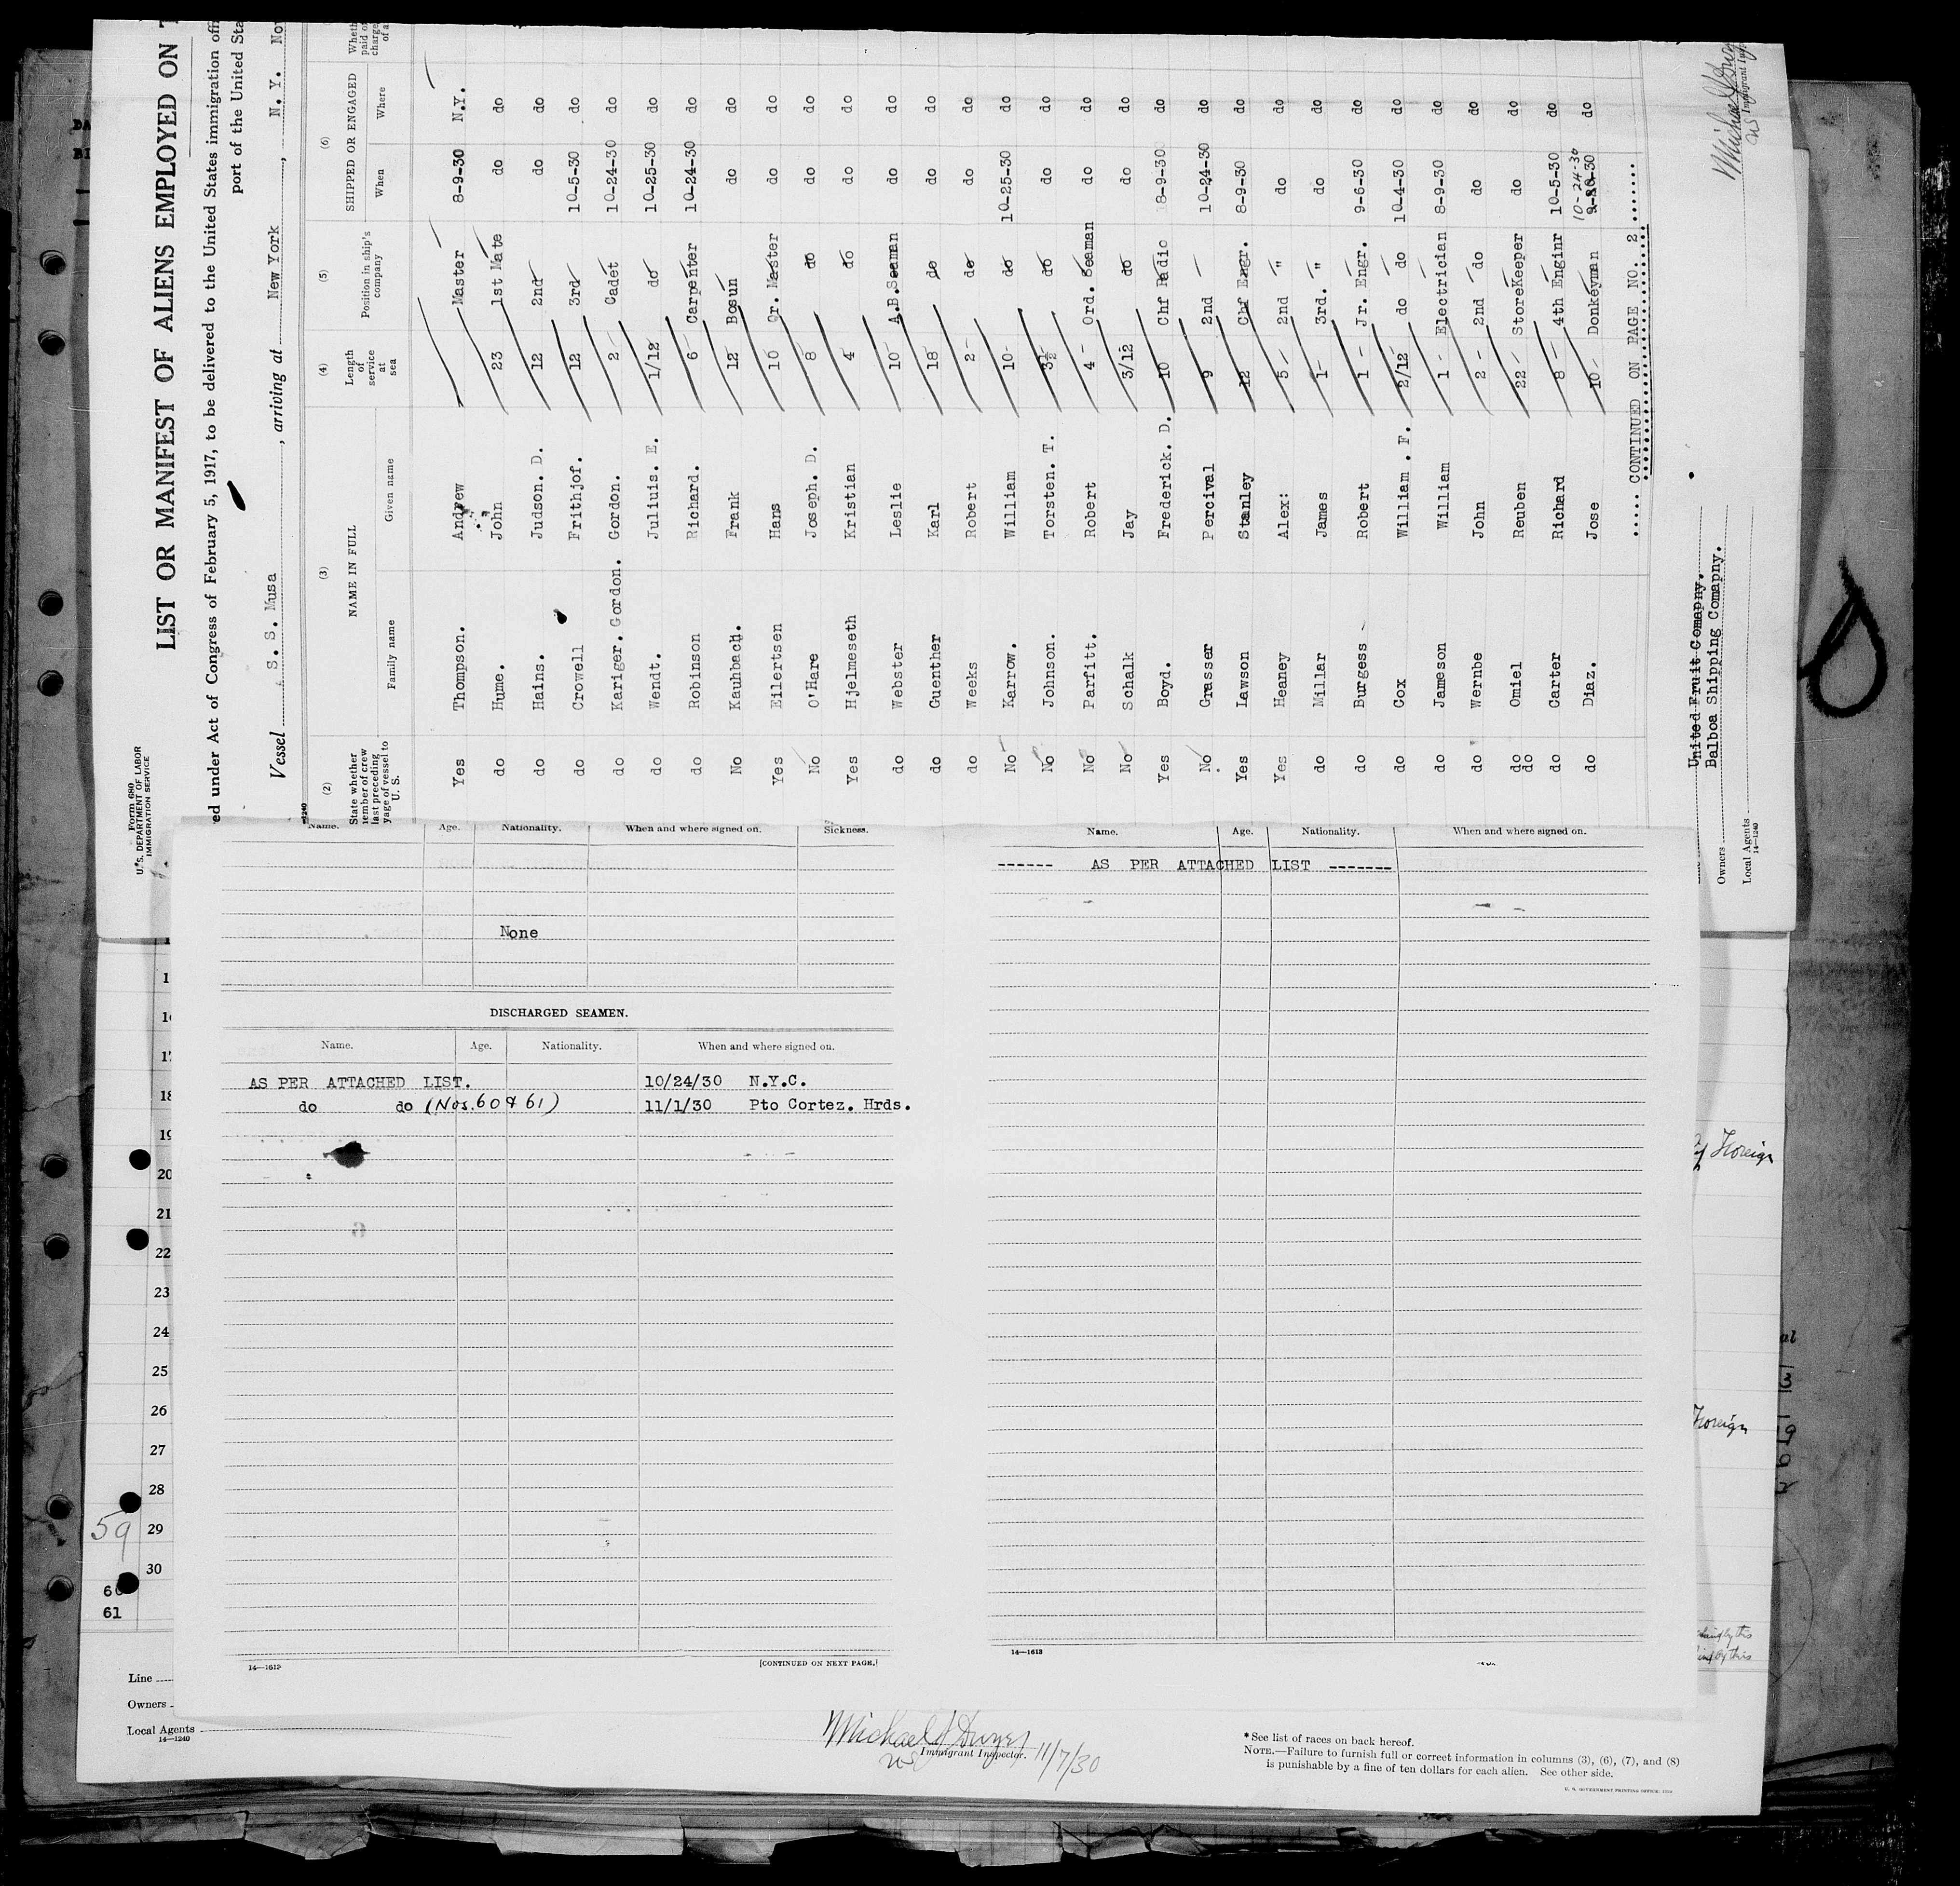 Form 680
U. S. DEPARTMENT OF LABOR
IMMIGRATION SERVICE
LIST OR MANIFEST OF ALIENS EMPLOYED ON
ed under Act of Congress of February 5, 1917, to be delivered to the United States immigration offi
port of the United Sta
Vessel S. S. Musa , arriving at New York , N. Y. Nov
(2) (3) (4) (5) (6)
State whether member of crew last preceding voyage of vessel to U. S. NAME IN FULL Length of service at sea Position in ship's company SHIPPED OR ENGAGED
Family name Given name When Where
Yes Thompson. Andrew Master 8-9-30 N.Y.
do Hume. John 23 1st Mate do do
do Hains. Judson. D. 12 2nd do do
do Crowell Frithjof. 12 3rd 10-5-30 do
do Kariger. Gordon. Gordon. 2 Cadet 10-24-30 do
do Wendt. Juliuis. E. 1/12 do 10-25-30 do
do Robinson Richard. 6 Carpenter 10-24-30 do
No Kauhbach. Frank 12 Bosun do do
Yes Eilertsen Hans 10 Qr. Master do do
No O'Hare Joseph. D. 8 do do do
Yes Hjelmeseth Kristian 4 do do do
do Webster Leslie 10 A.B.Seaman do do
do Guenther Karl 18 do do do
do Weeks Robert 2 do do do
No Karrow. William 10 do 10-25-30 do
No Johnson. Torsten. T. 3½ do do do
No Parfitt. Robert 4 Ord. Seaman do do
No Schalk Jay 3/12 do do do
Yes Boyd. Frederick. D. 10 Chf Radio 8-9-30 do
No Grasser Percival 9 2nd 10-24-30 do
Yes Lawson Stanley 12 Chf Engr. 8-9-30 do
Yes Heaney Alex: 5 2nd " do do
do Millar James 1 3rd. " do do
do Burgess Robert 1 Jr. Engr. 9-6-30 do
do Cox William . F. 2/12 do do 10-4-30 do
do Jameson William 1 Electrician 8-9-30 do
do Wernbe John 2 2nd do do do
do do Omiel Reuben 22 StoreKeeper do do
do Carter Richard 8 4th Enginr 10-5-30 do
do Diaz. Jose 10 Donkeyman 10-24-30 do
..... CONTINUED ON PAGE NO. 2 .......
United Fruit Comapny.
Owners Balboa Shipping Comapny.
Local Agents
14—1240
Name. Age. Nationality. When and where signed on. Sickness.
None
DISCHARGED SEAMEN.
Name. Age. Nationality. When and where signed on.
AS PER ATTACHED LIST. 10/24/30 N.Y.C.
do do (Nos. 60 & 61) 11/1/30 Pto Cortez. Hrds.
14—1613
[CONTINUED ON NEXT PAGE.]
Name. Age. Nationality. When and where signed on.
------ AS PER ATTACHED LIST -------
14—1613
19
20
21
22
23
24
25
26
27
28
59 29
30
60
61
Foreign
Foreign
Line
Owners
Local Agents
14—1240
Michael J Dwyer
US Immigrant Inspector. 11/7/30
* See list of races on back hereof.
NOTE.—Failure to furnish full or correct information in columns (3), (6), (7), and (8)
is punishable by a fine of ten dollars for each alien. See other side.
U. S. GOVERNMENT PRINTING OFFICE